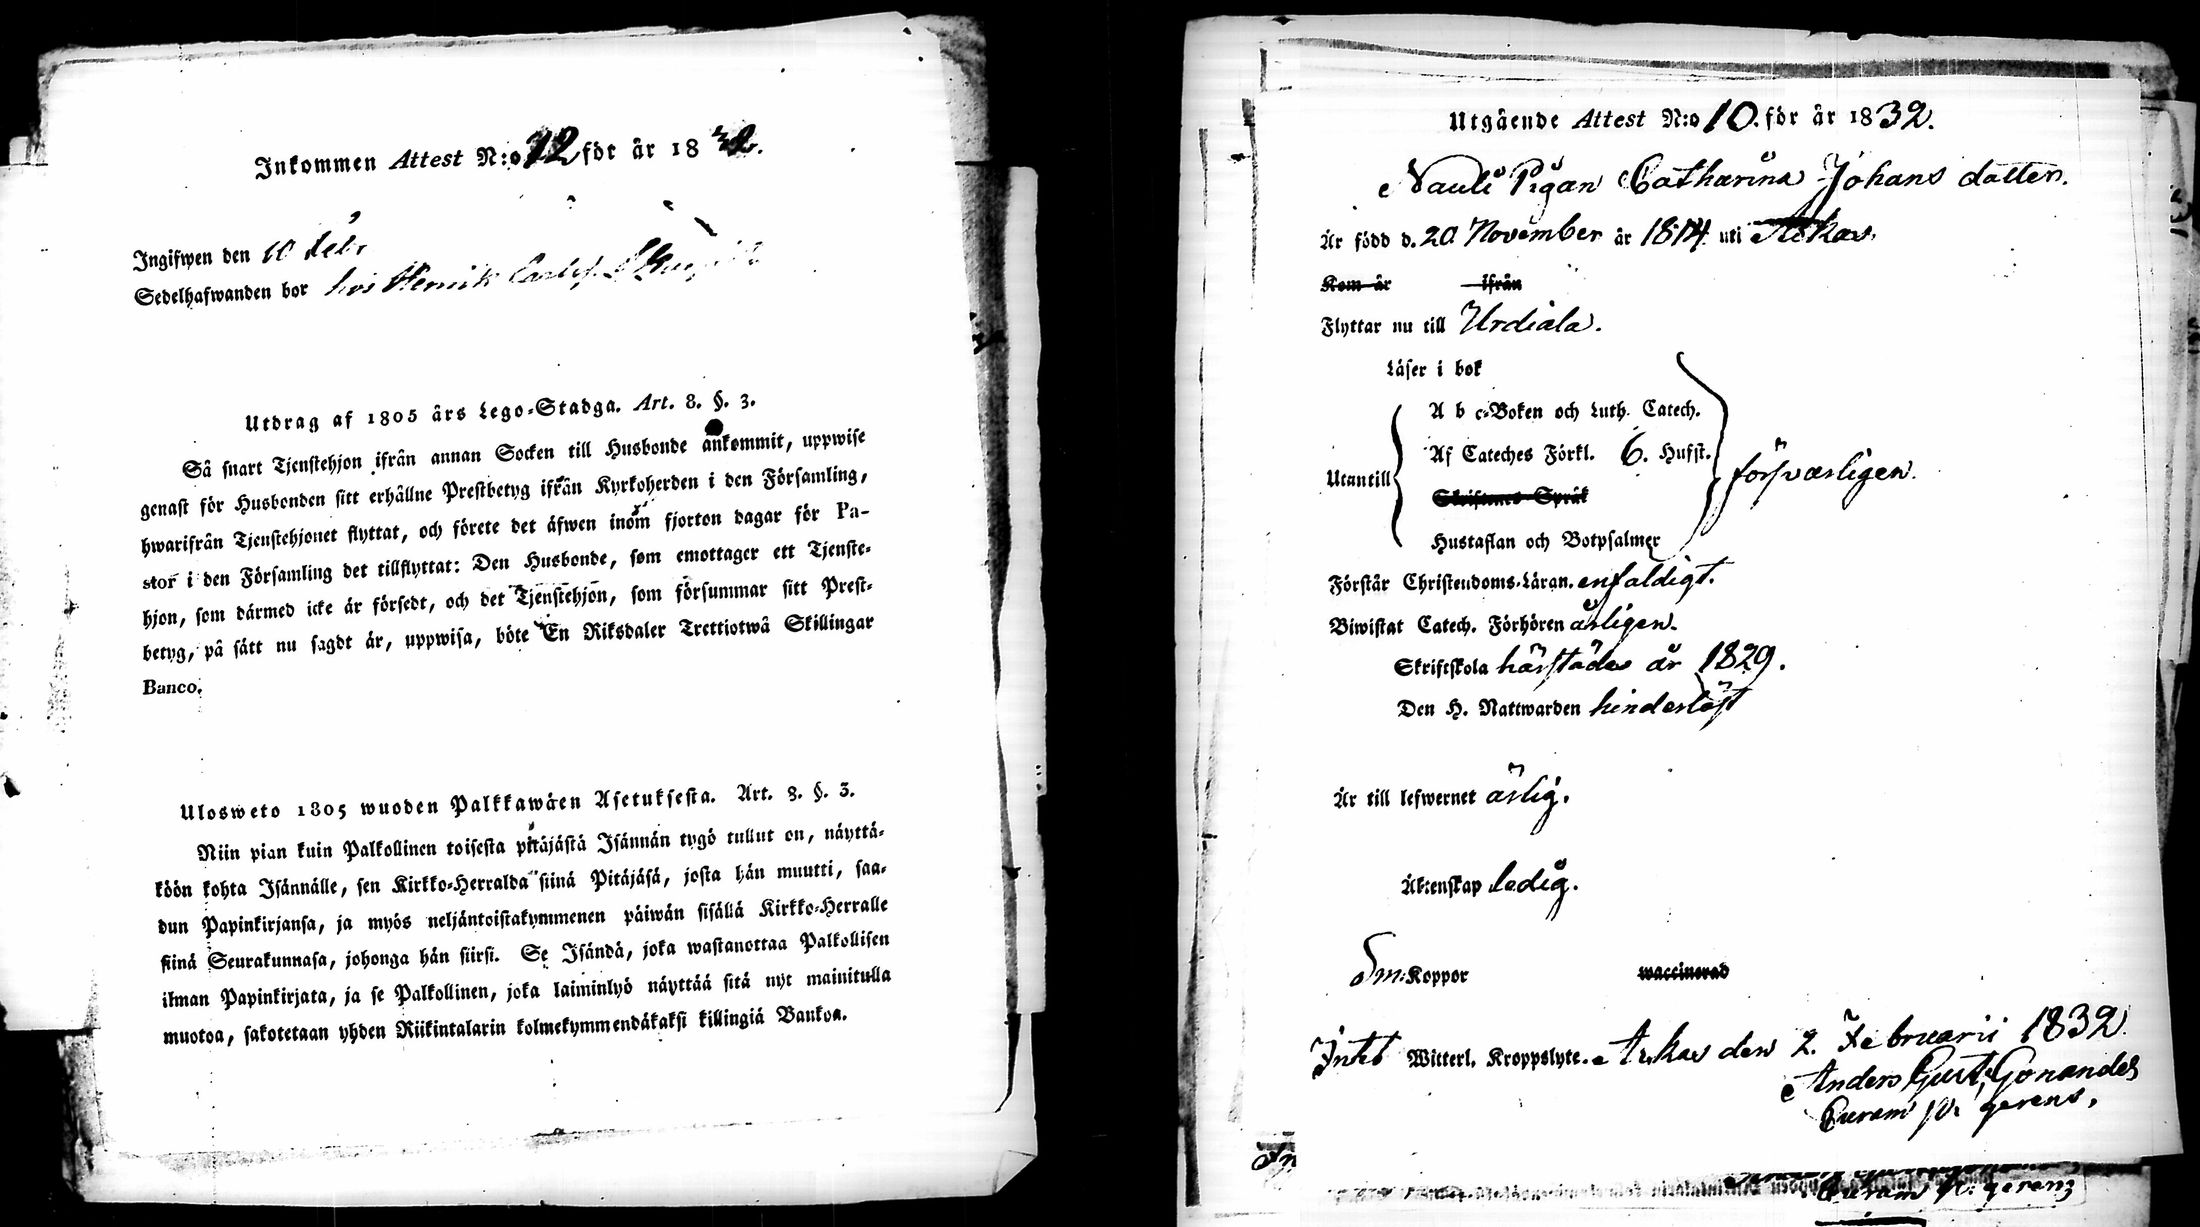 Inkommen Attest N:o 12 för år 1832.
Ingifwen den 10 Febr
Sedelhafwanden bor hos Henrik
Utdrag af 1805 års Lego-Stadga. Art. 8. §. 3.
Så snart Tjenstehjon ifrån annan Socken till Husbonde ankommit, uppwise
genast för Husbonden sitt erhållne Prestbetyg ifrån Kyrkoherden i den Församling,
hwarifrån Tjenstehjonet flyttat, och förete det äfwen inom fjorton dagar för Pa-
stor i den Församling det tillflyttat: Den Husbonde, som emottager ett Tjenste-
hjon, som därmed icke är försedt, och det Tjenstehjon, som försummar sitt Prest-
betyg, på sätt nu sagdt är, uppwisa, böte En Riksdaler Trettiotwå Skillingar
Banco.
Ulosweto 1805 wuoden Palkkawäen Asetuksesta. Art. 8. §. 3.
Niin pian kuin Palkollinen toisesta pitäjästä Isännän tygö tullut on, näyttä-
köön kohta Isännälle, sen Kirkko-Herralda siinä Pitäjäsä, josta hän muutti, saa-
dun Papinkirjansa, ja myös neljäntoistakymmenen päiwän sisällä Kirkko-Herralle
siinä Seurakunnasa, johonga hän siirsi. Se Isändä, joka wastanottaa Palkollisen
ilman Papinkirjata, ja se Palkollinen, joka laiminlyö näyttää sitä nyt mainitulla
muotoa, sakotetaan yhden Riikintalarin kolmekymmendäkaksi killingiä Bankoa.
Utgående Attest N:o 10. för år 1832.
Nauli Pigan Catharina Johans dotter.
Är född d. 20 November år 1814 uti Akas.
Kom år ifrån
Flyttar nu till Urdiala.
Läser i bok
A b c-Boken och Luth. Catech.
Af Cateches Förkl. 6. Hufst.
Utantill försvarligen.
Skriftenes Språk
Hustaflan och Botpsalmer
Förstår Christendoms-Läran. enfaldigt.
Biwistat Catech. Förhören årligen.
Skriftskola härstädes år 1829.
Den H. Nattwarden hinderlöst
Är till lefwernet ärlig.
Äktenskap ledig.
Sm: Koppor waccinerad
Intet Witterl. Kroppslyte. Akas den 2. Februarii 1832
Anders Gust. Gonandes
Curam p: gerens.
Curam p: gerens